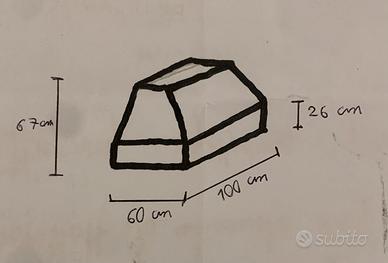 67 cm
26 cm
100 cm
60 cm
subito